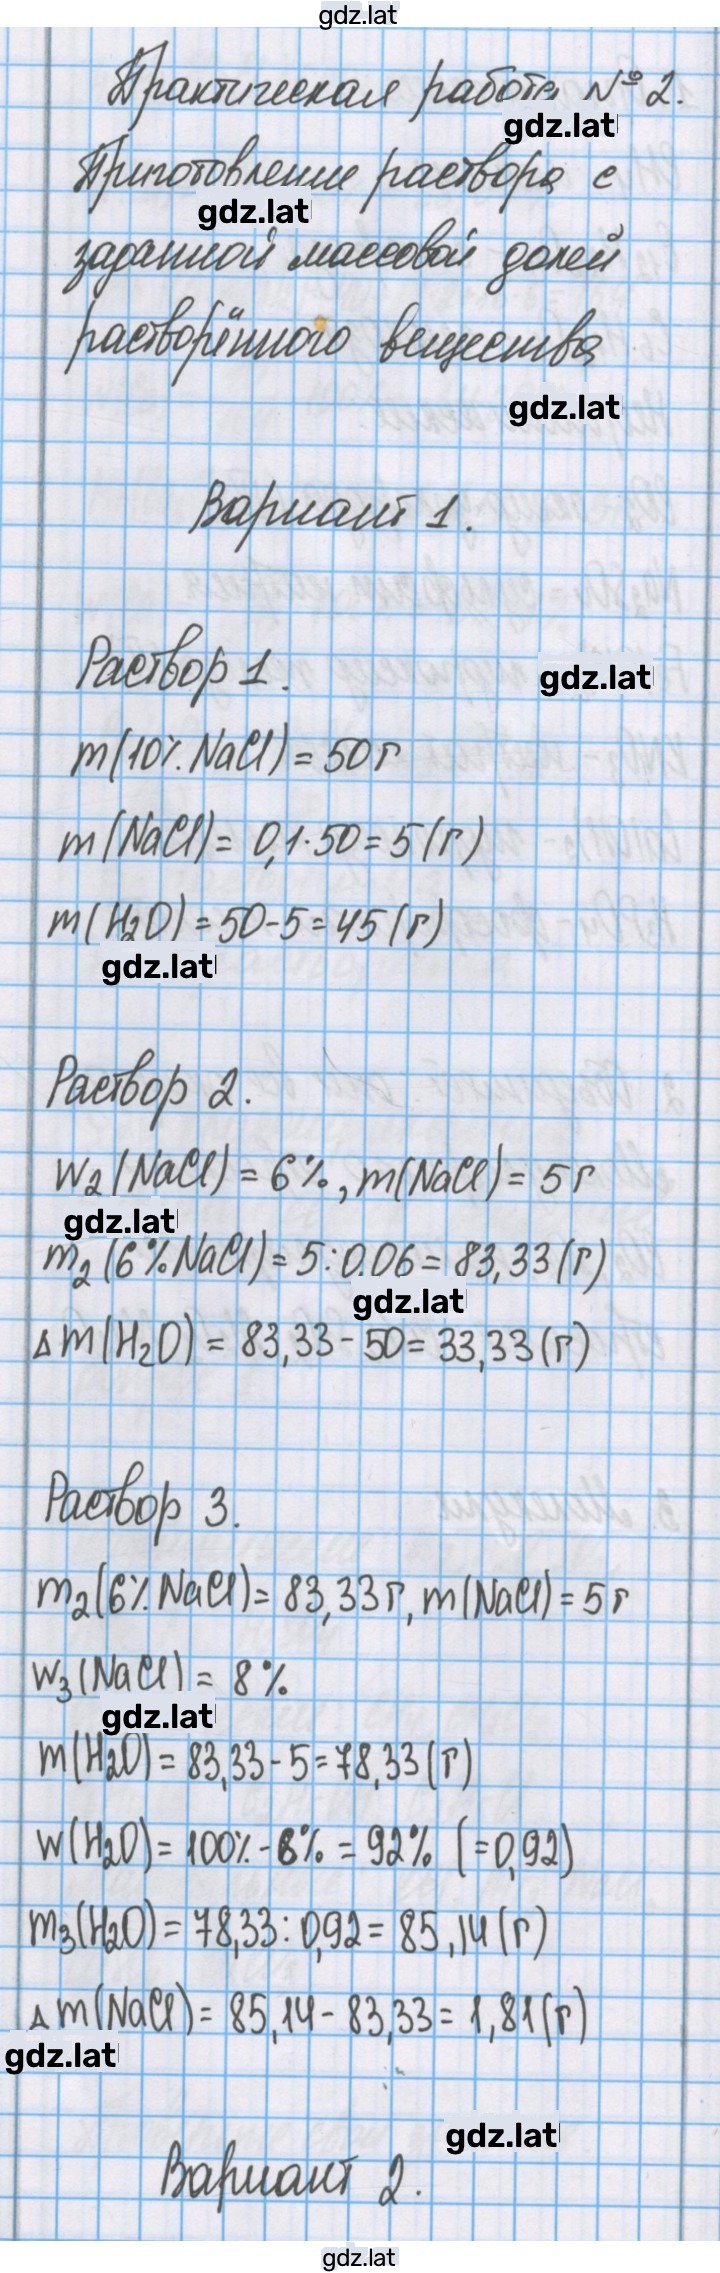 gdz.lat
Практическая работа № 2.
gdz.lat
Приготовление раствора с
gdz.lat
заданной массовой долей
растворённого вещества
gdz.lat
Вариант 1.
Раствор 1.
gdz.lat
m(10% NaCl) = 50 г
m(NaCl) = 0,1·50 = 5 (г)
m(H₂O) = 50-5 = 45 (г)
gdz.lat
Раствор 2.
w₂(NaCl) = 6%, m(NaCl) = 5 г
gdz.lat
m₂(6% NaCl) = 5:0,06 = 83,33 (г)
gdz.lat
Δm(H₂O) = 83,33 - 50 = 33,33 (г)
Раствор 3.
m₂(6% NaCl) = 83,33 г, m(NaCl) = 5 г
w₃(NaCl) = 8%
gdz.lat
m(H₂O) = 83,33 - 5 = 78,33 (г)
w(H₂O) = 100% - 8% = 92% (=0,92)
m₃(H₂O) = 78,33 : 0,92 = 85,14 (г)
Δm(NaCl) = 85,14 - 83,33 = 1,81 (г)
gdz.lat
gdz.lat
Вариант 2.
gdz.lat